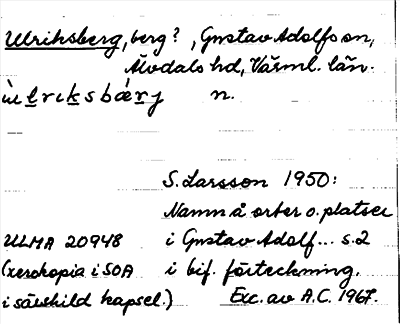 Ulriksberg, berg?, Gustav Adolfs sn,
Älvdals hd, Värml. län.
ùlriksbæ̀rj n.
S. Larsson 1950:
Namn å orter o. platser
ULMA 20948 i Gustav Adolf... s. 2
(xerokopia i SOA i bif. förteckning.
i särskild kapsel.) Exc. av A.C. 1967.